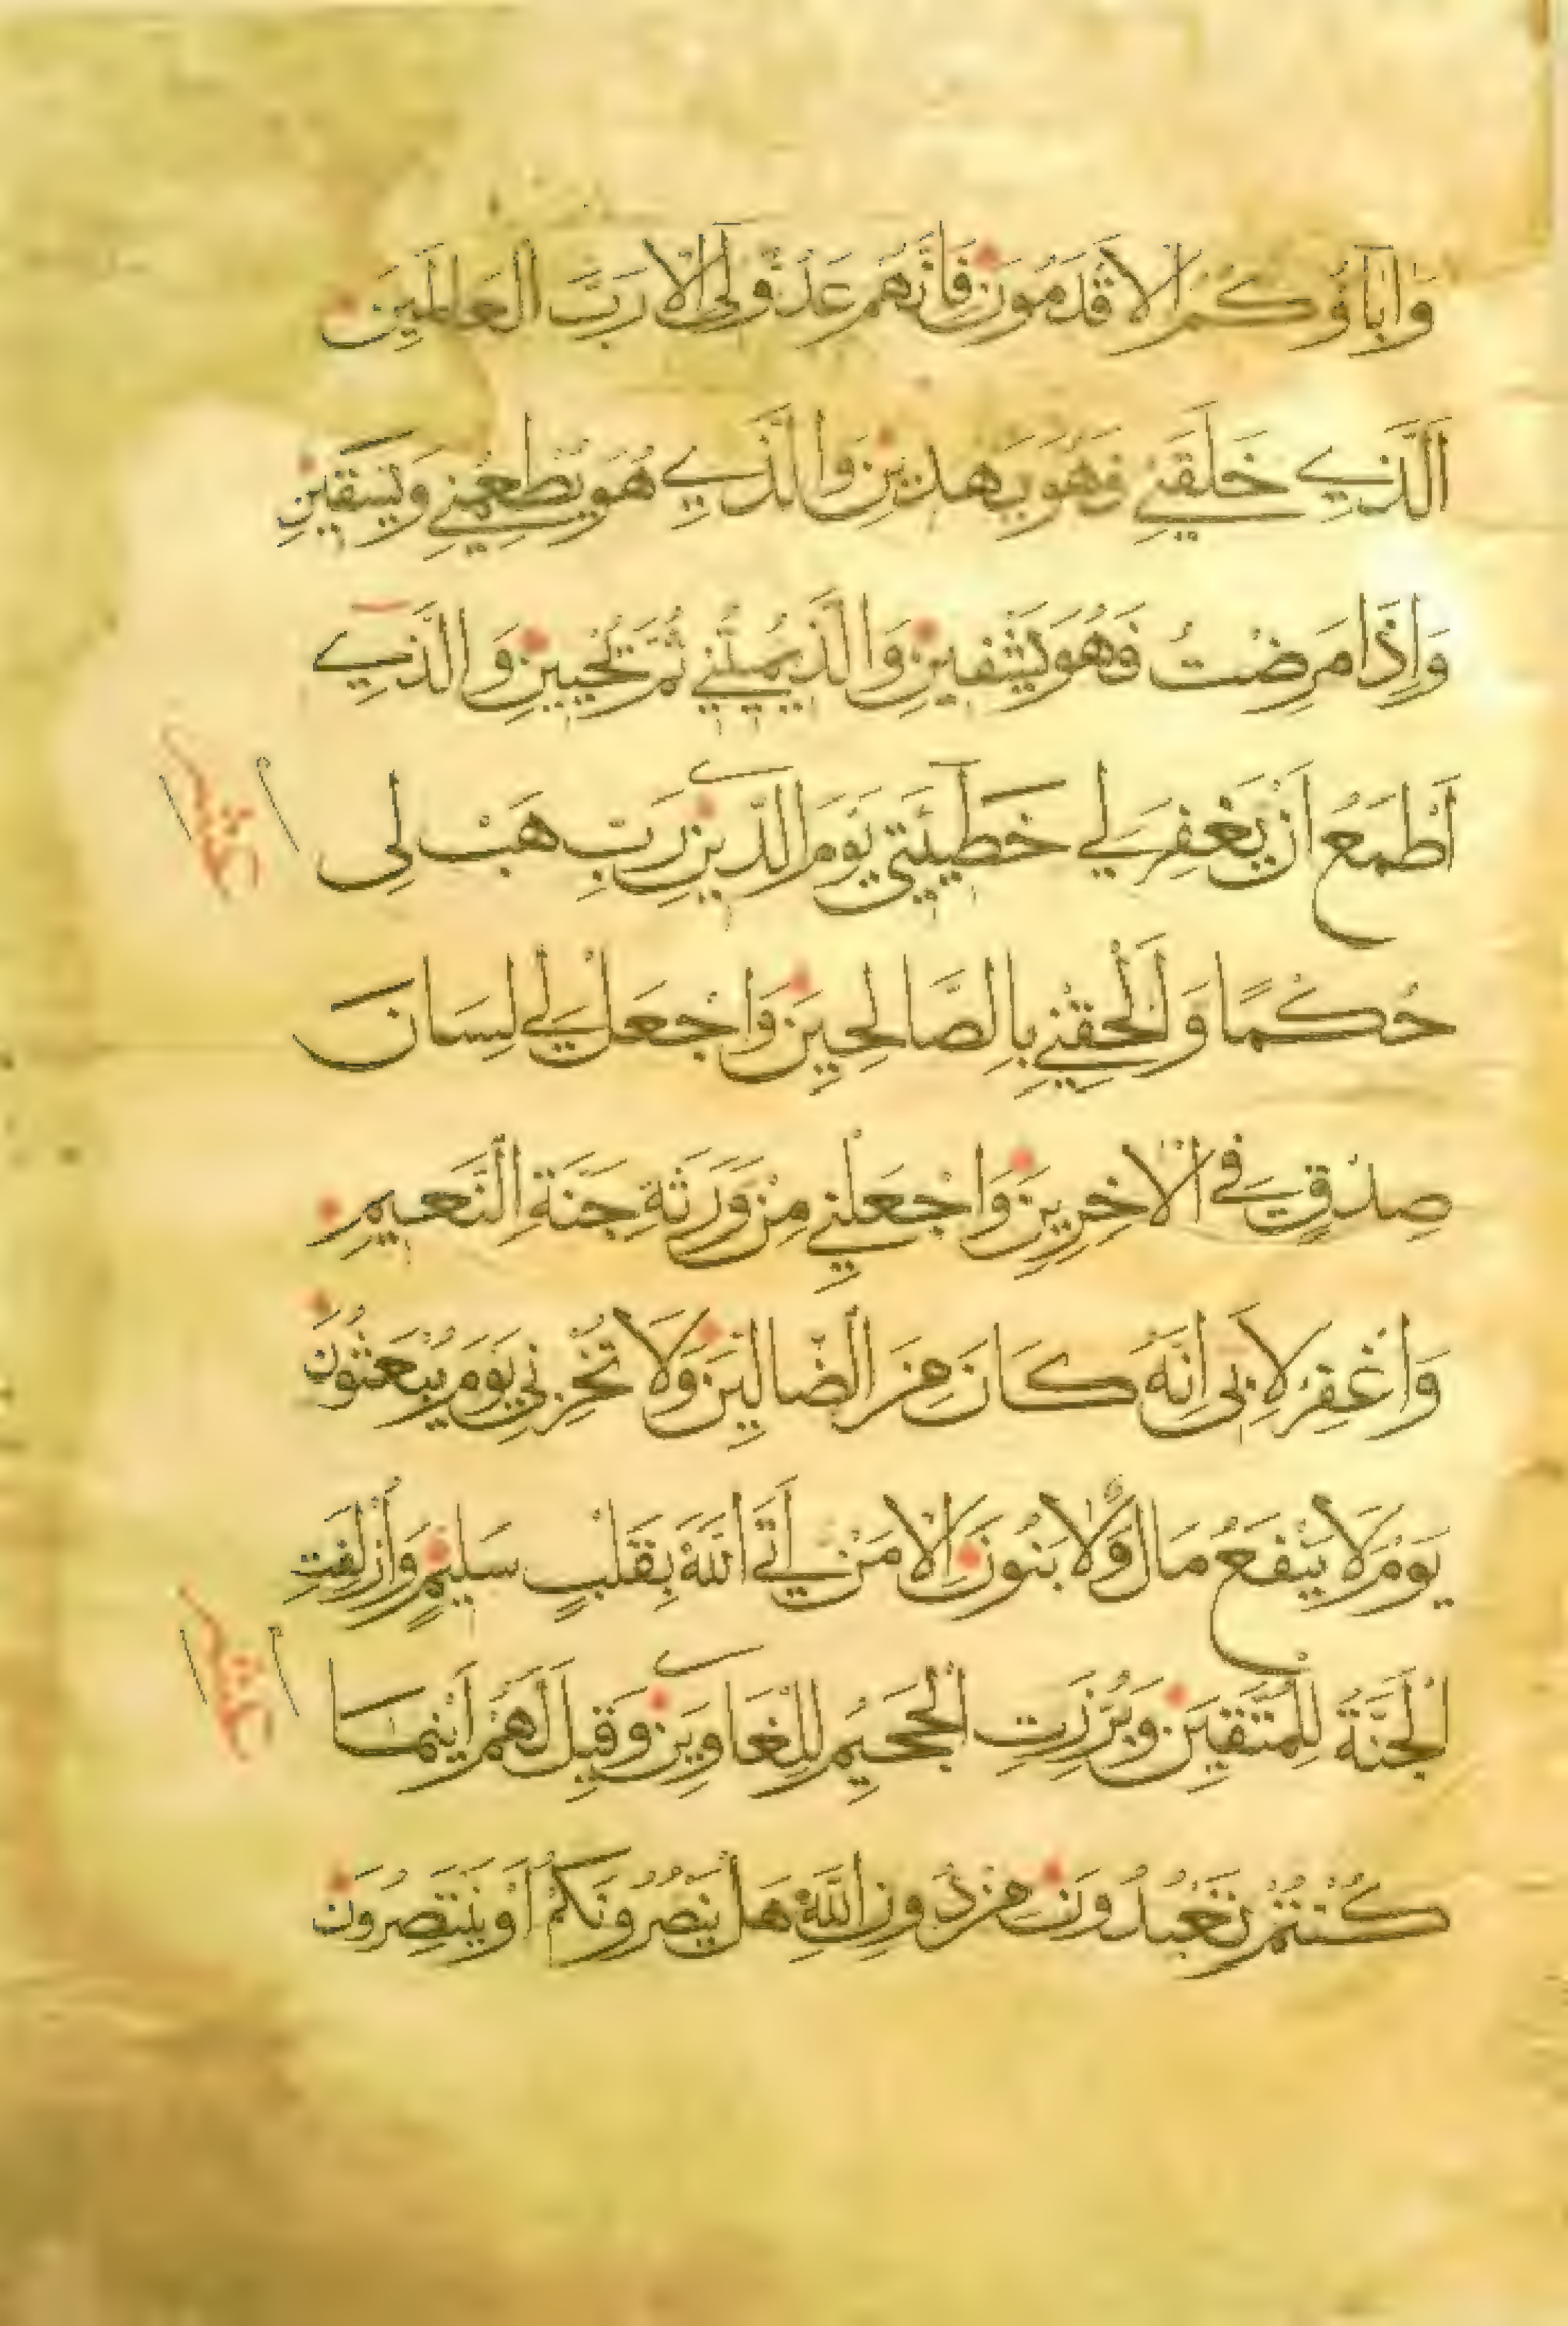 وَاٰبَاؤُكُمُ الْاَقْدَمُونَ فَاِنَّهُمْ عَدُوٌّ لِى اِلَّا رَبَّ الْعَالَمِينَ
اَلَّذِي خَلَقَنِي فَهُوَ يَهْدِينِ وَالَّذِي هُوَ يُطْعِمُنِي وَيَسْقِينِ
وَاِذَا مَرِضْتُ فَهُوَ يَشْفِينِ وَالَّذِي يُمِيتُنِي ثُمَّ يُحْيِينِ وَالَّذِي
اَطْمَعُ اَنْ يَغْفِرَ لِي خَطِيئَتِي يَوْمَ الدِّينِ رَبِّ هَبْ لِى
حُكْمًا وَاَلْحِقْنِي بِالصَّالِحِينَ وَاجْعَلْ لِي لِسَانَ
صِدْقٍ فِي الْاٰخِرِينَ وَاجْعَلْنِي مِنْ وَرَثَةِ جَنَّةِ النَّعِيمِ
وَاغْفِرْ لِاَبِى اِنَّهُ كَانَ مِنَ الضَّالِّينَ وَلَا تُخْزِنِي يَوْمَ يُبْعَثُونَ
يَوْمَ لَا يَنْفَعُ مَالٌ وَلَا بَنُونَ اِلَّا مَنْ اَتَى اللّٰهَ بِقَلْبٍ سَلِيمٍ وَاُزْلِفَتِ
الْجَنَّةُ لِلْمُتَّقِينَ وَبُرِّزَتِ الْجَحِيمُ لِلْغَاوِينَ وَقِيلَ لَهُمْ اَيْنَمَا
كُنْتُمْ تَعْبُدُونَ مِنْ دُونِ اللّٰهِ هَلْ يَنْصُرُونَكُمْ اَوْ يَنْتَصِرُونَ
عشر
عشر